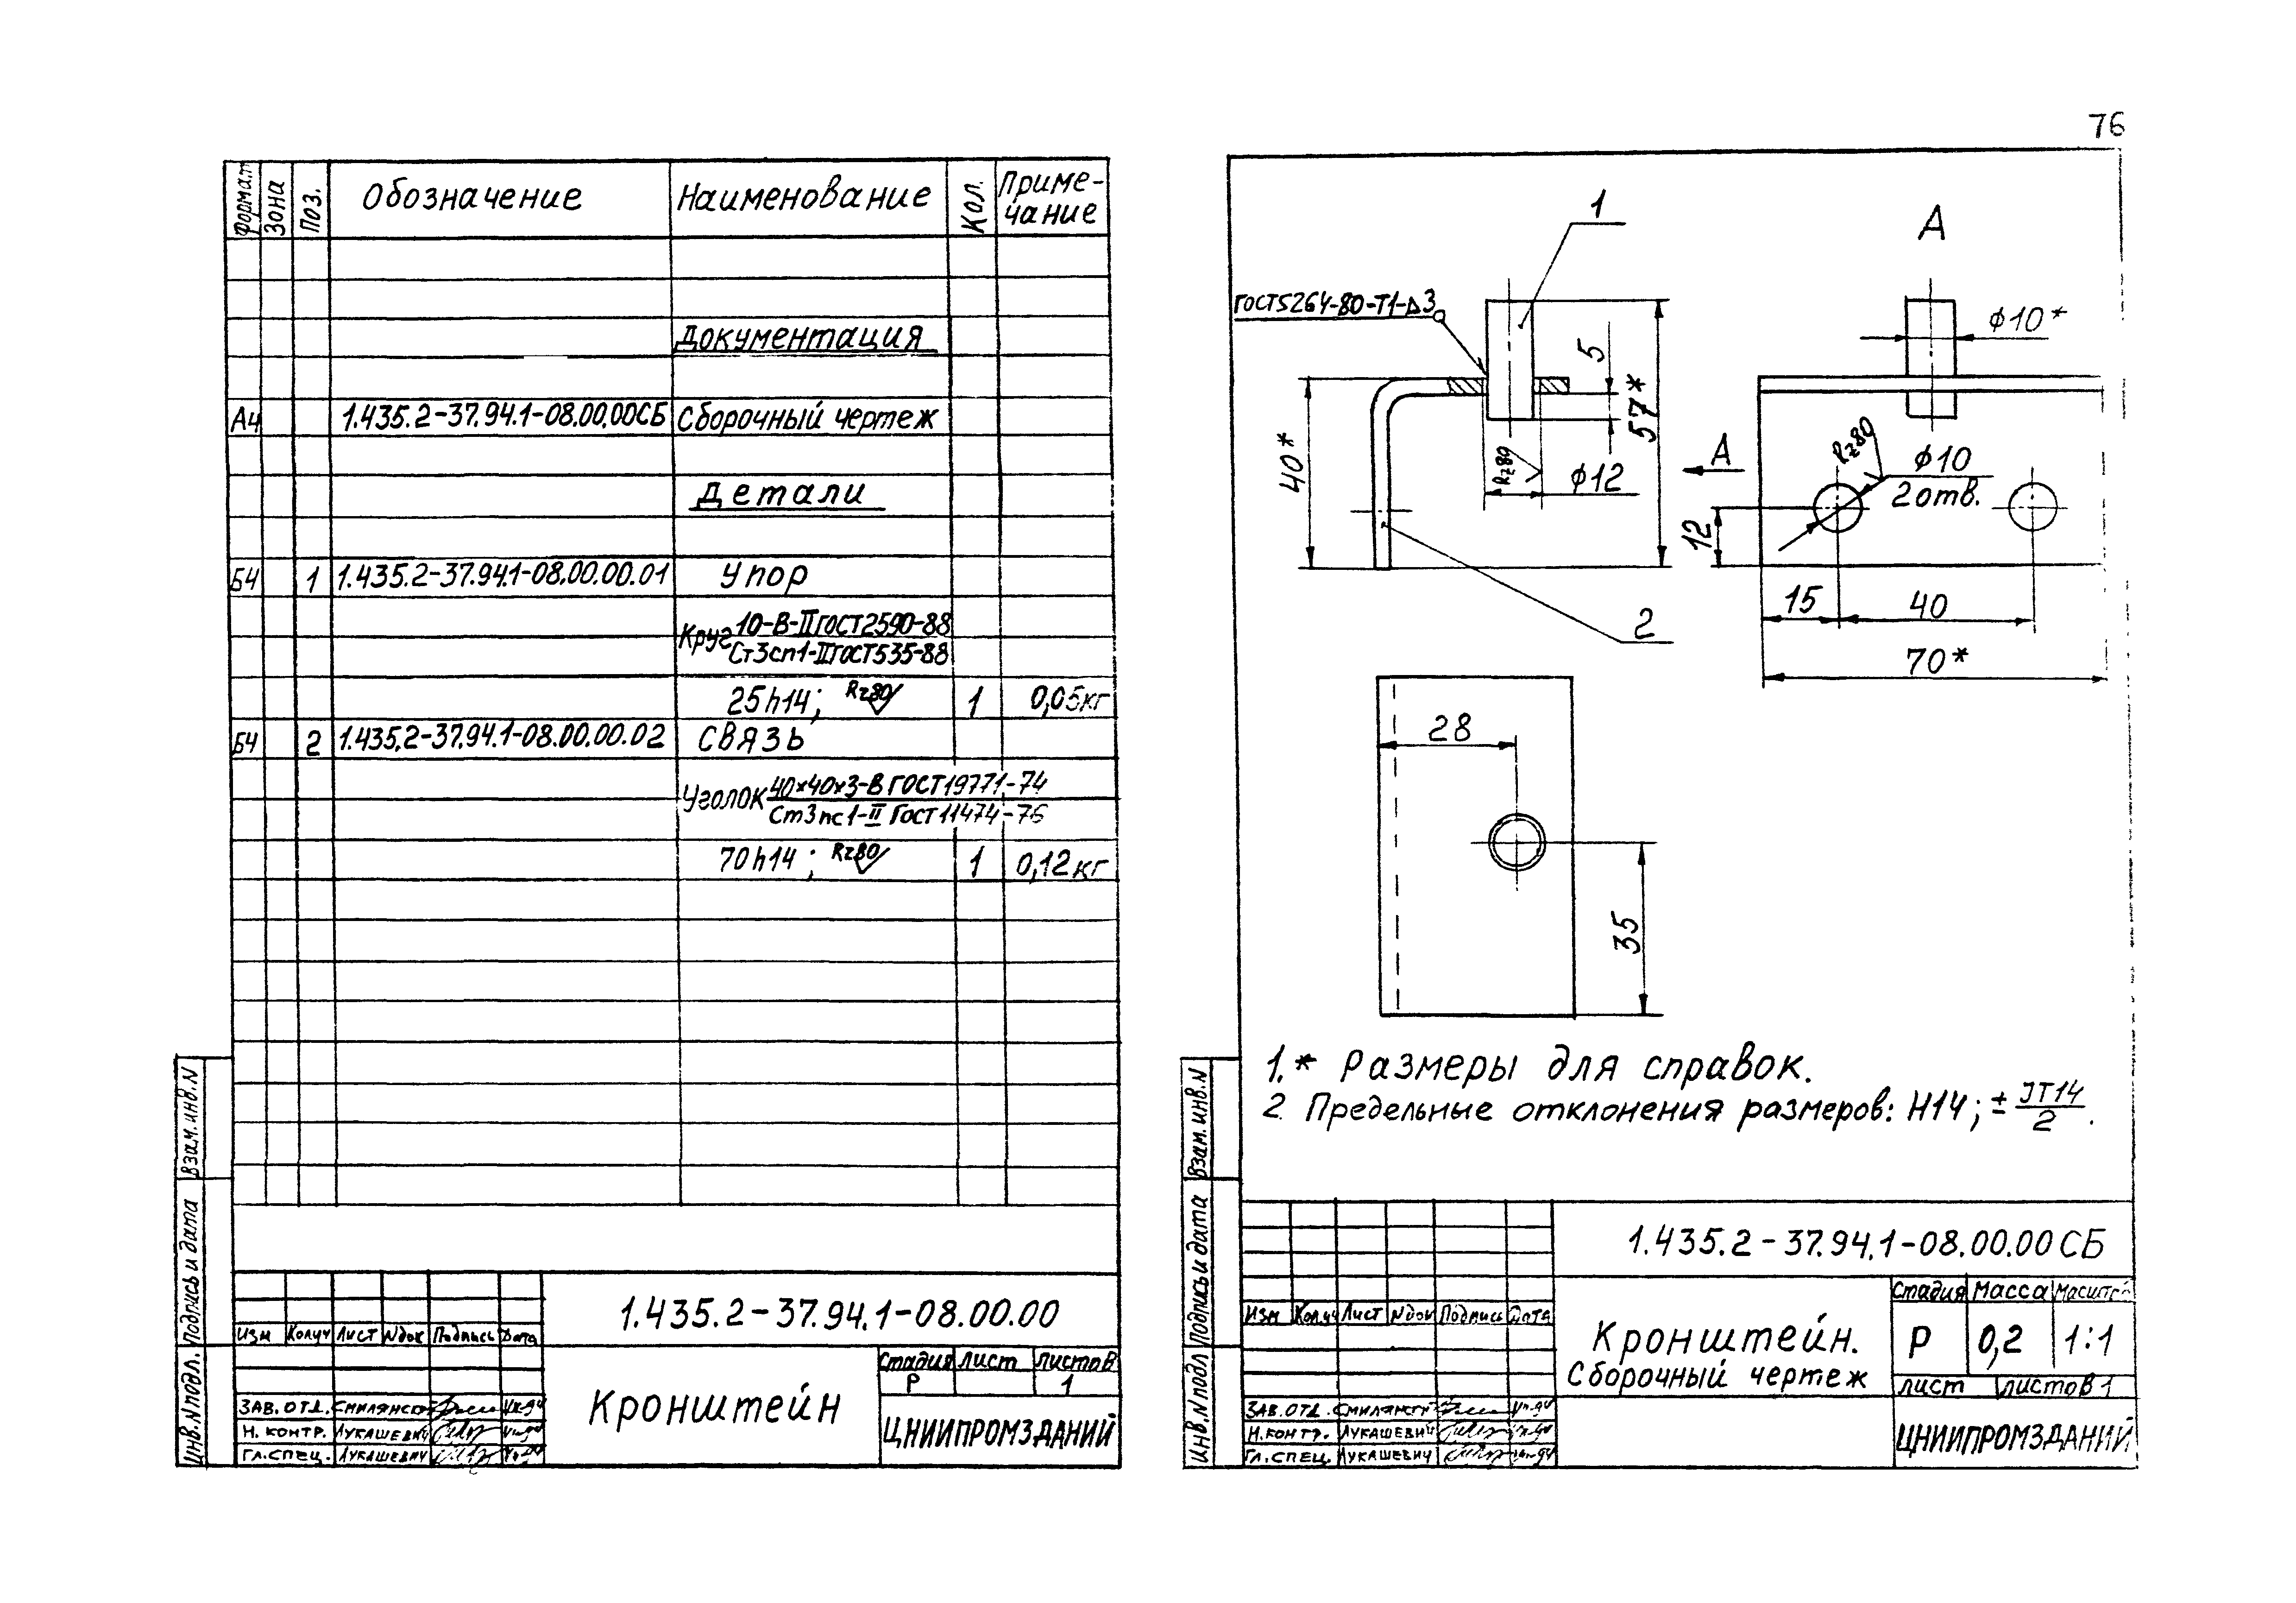 76
Формат Зона Поз. Обозначение Наименование Кол. Приме-
чание
Документация
А4 1.435.2-37.94.1-08.00.00СБ Сборочный чертеж
Детали
БЧ 1 1.435.2-37.94.1-08.00.00.01 Упор
Круг 10-В-II ГОСТ 2590-88
Ст3сп1-II ГОСТ 535-88
25h14; Rz80 1 0,05кг
БЧ 2 1.435.2-37.94.1-08.00.00.02 Связь
Уголок 40×40×3-В ГОСТ 19771-74
Ст3пс1-II Гост 11474-76
70h14; Rz80 1 0,12кг
Взам.инв.N
Подпись и дата
Инв.N подл.
1.435.2-37.94.1-08.00.00
Изм Колуч Лист Nдок Подпись Дата
Кронштейн
Стадия Лист Листов
Р 1
ЗАВ.ОТД. Смилянск
Н. КОНТР. Лукашевич
ГЛ.СПЕЦ. Лукашевич
ЦНИИПРОМЗДАНИЙ
1
А
ГОСТ5264-80-Т1-Δ3
5
57*
40*
Rz80
ϕ12
2
А
ϕ10*
Rz80
ϕ10
2 отв.
12
15
40
70*
28
35
1.* Размеры для справок.
2. Предельные отклонения размеров: Н14; ± JT14/2.
Взам.инв.N
Подпись и дата
Инв.N подл
1.435.2-37.94.1-08.00.00СБ
Изм Колуч Лист Nдок Подпись Дата
Кронштейн.
Сборочный чертеж
Стадия Масса
Р 0,2 1:1
Лист Листов 1
ЗАВ.ОТД.
Н.КОНТР. Лукашевич
ГЛ.СПЕЦ. Лукашевич
ЦНИИПРОМЗДАНИЙ